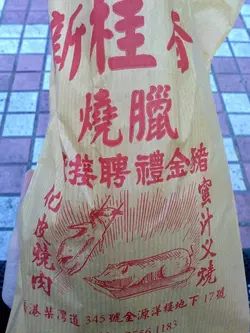 新桂香
燒臘
接聘禮金豬
化皮燒肉
蜜汁叉燒
港柴灣道345號金源洋樓地下17號
556 1183